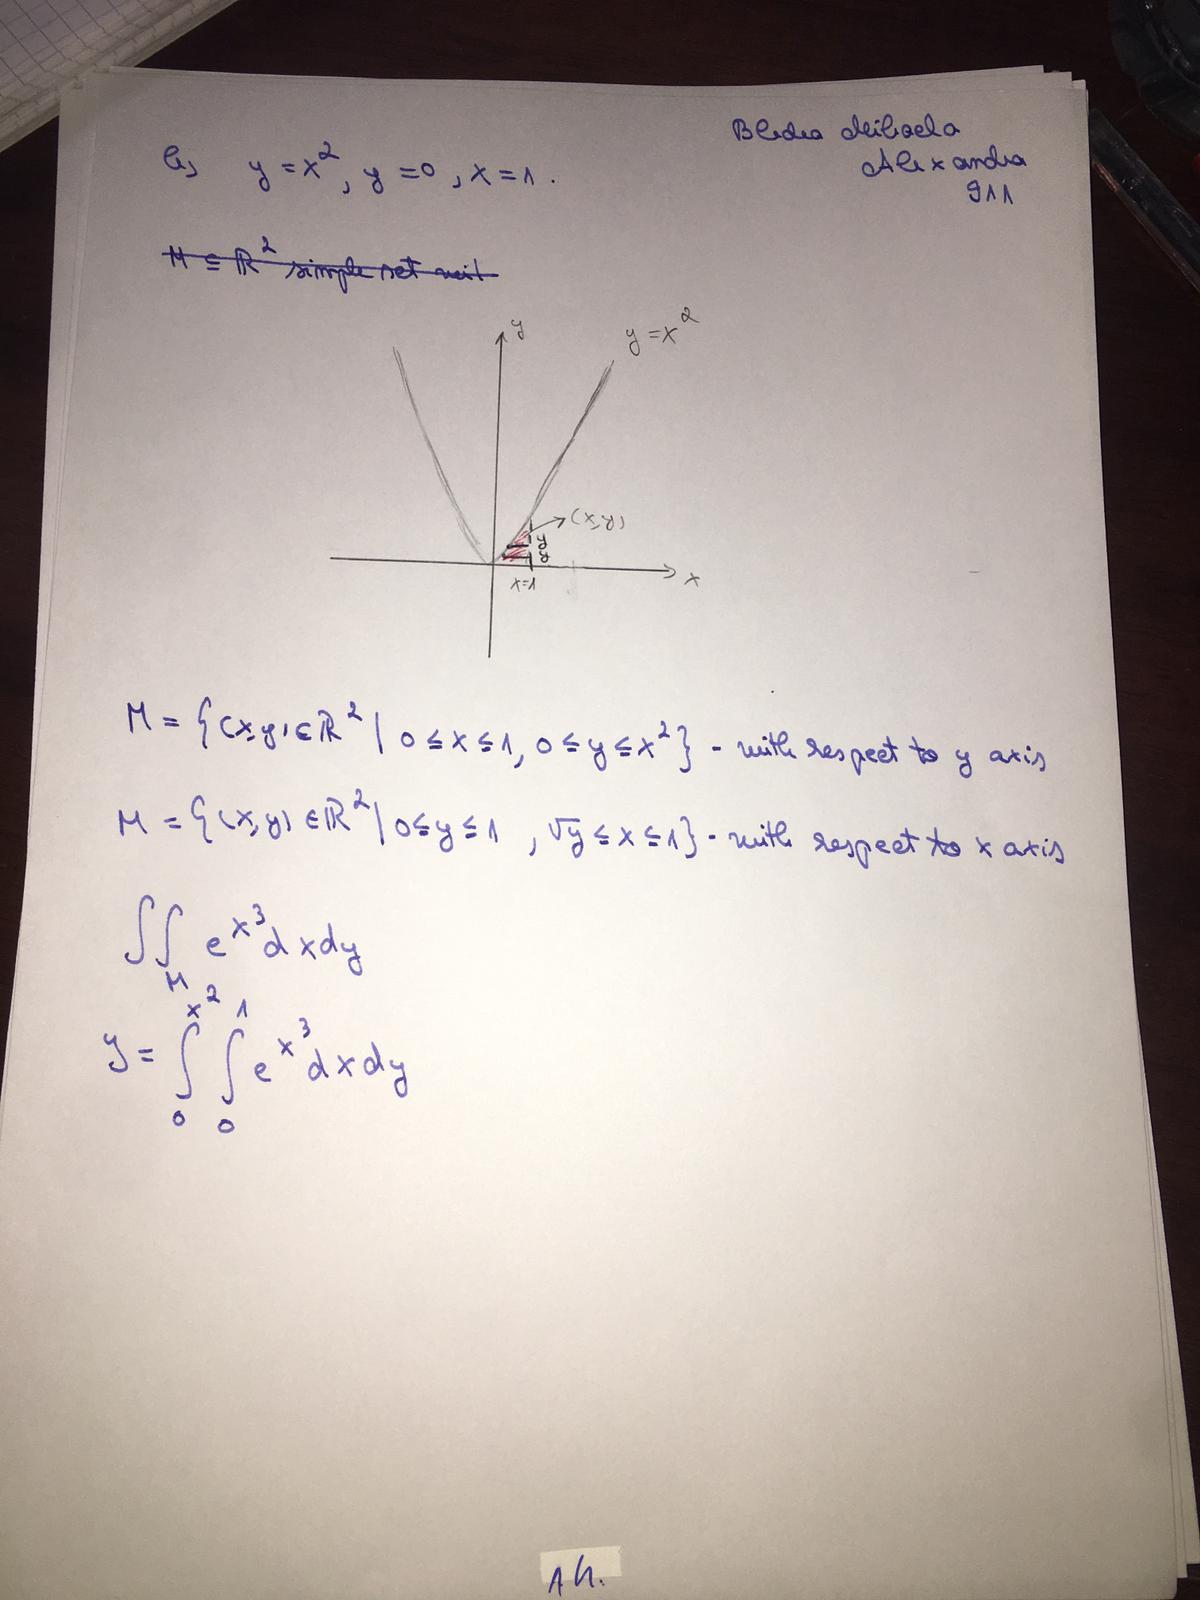 b) y = x², y = 0, x = 1.
Alexandra
911
M ⊆ ℝ² simple set
y
y = x²
(x,y)
y
y
x=1
x
M = {(x,y) ∈ ℝ² | 0 ≤ x ≤ 1, 0 ≤ y ≤ x²} - with respect to y axis
M = {(x,y) ∈ ℝ² | 0 ≤ y ≤ 1, √y ≤ x ≤ 1} - with respect to x axis
∬_M e^{x³} dx dy
y = ∫_0^{x²} ∫_0^1 e^{x³} dx dy